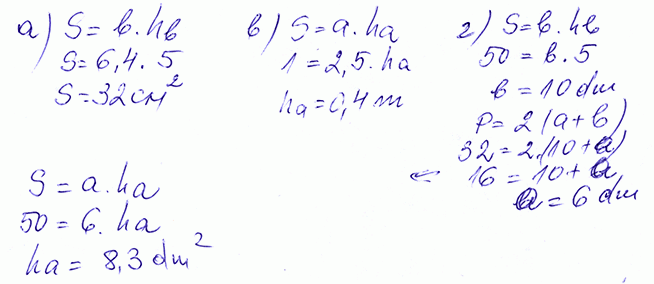 а) S = b. hb
S = 6,4 . 5
S = 32 см²
в) S = a. ha
1 = 2,5. ha
ha = 0,4 m
г) S = b. hb
50 = b. 5
b = 10 dm
P = 2(a+b)
32 = 2.(10+a)
← 16 = 10 + a
a = 6 dm
S = a. ha
50 = 6. ha
ha = 8,3 dm²